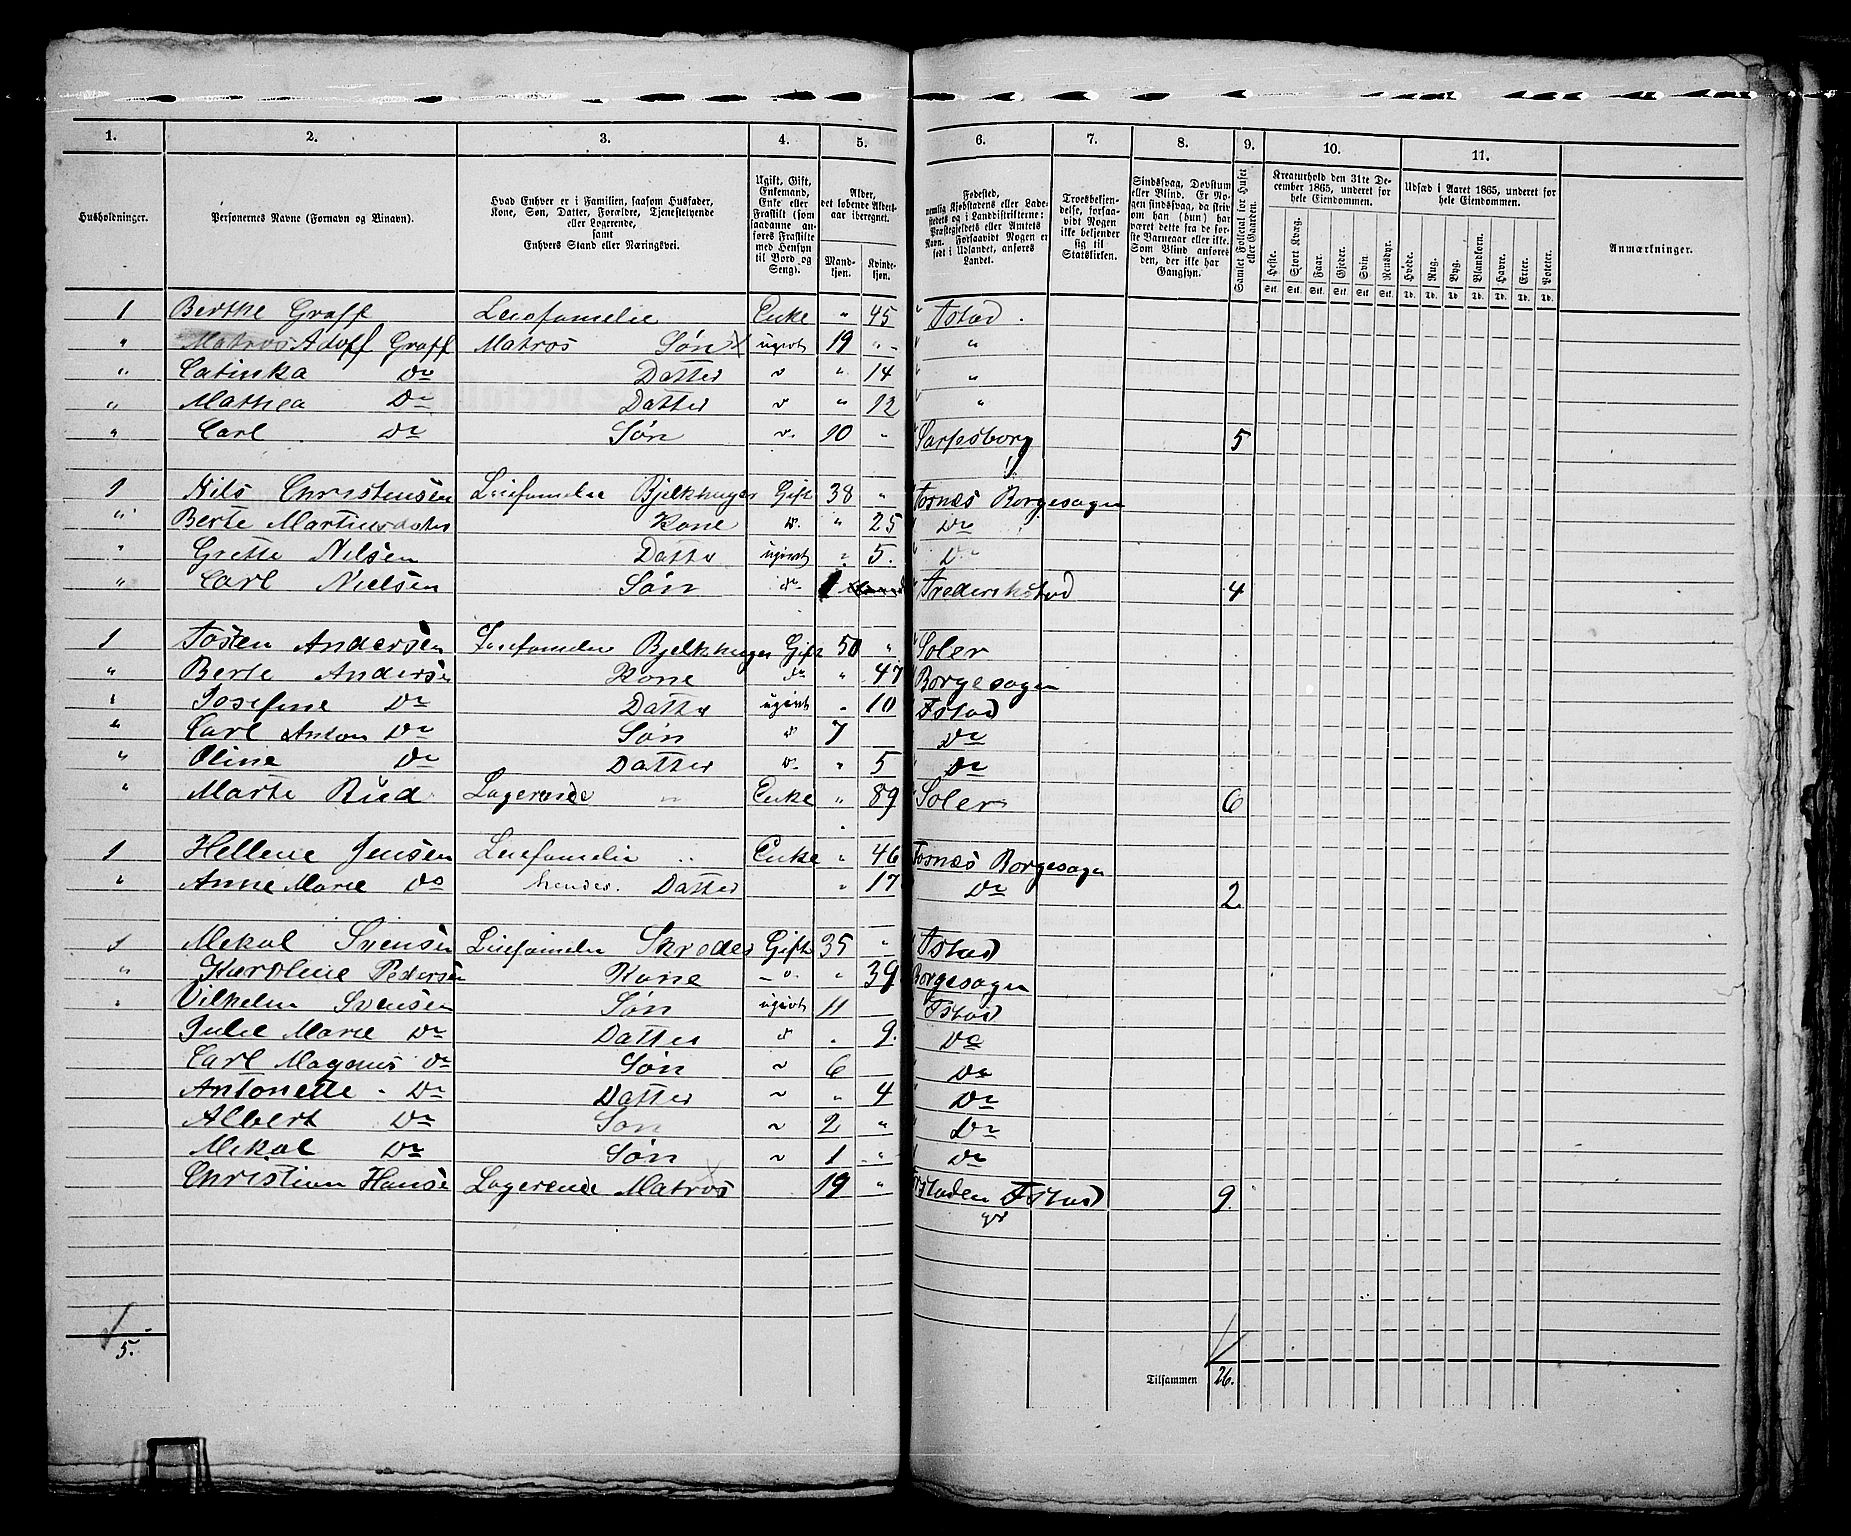 1. 2. 3. 4. 5. 6. 7. 8. 9. 10. 11.
Husholdninger.
Personernes Navne (Fornavn og Binavn).
Hvad Enhver er i Familien, saasom Husfader, Kone, Søn, Datter, Forældre, Tjenestetyende eller Logerende, samt Enhvers Stand eller Næringsvei.
Ugift, Gift, Enkemand, Enke eller Fraskilt (som saadanne anføres Fraskilte med Hensyn til Bord og Seng).
Alder, det løbende Aldersaar iberegnet.
Mandkjøn. Kvindekjøn.
Fødested, nemlig Kjøbstadens eller Ladestedets og i Landdistrikterne: Præstegjeldets eller Amtets Navn. Forsaavidt Nogen er født i Udlandet, anføres Landet.
Troesbekjendelse, forsaavidt Nogen ikke bekjender sig til Statskirken.
Sindssvag, Døvstum eller Blind. Er Nogen sindssvag, da skriv om han (hun) har været dette fra de første Barneaar eller ikke. Som Blind anføres den, der ikke har Gangsyn.
Samlet Folketal for Huset eller Gaarden.
Kreaturhold den 31te December 1865, underet for hele Eiendommen.
Heste. Stort Kvæg. Faar. Gjeder. Svin. Rensdyr.
Stk. Stk. Stk. Stk. Stk. Stk.
Udsæd i Aaret 1865, underet for hele Eiendommen.
Hvede. Rug. Byg. Blandkorn. Havre. Erter. Poteter.
Td. Td. Td. Td. Td. Td. Td.
Anmærkninger.
1 Berthe Graff Leiefamelie Enke " 45 Fstad.
" Matros Adolf Graff Matros Søn ugivt 19 " "
" Catinka Do Datter " " 14 "
" Mathea Do Datter " " 12 "
" Carl Do Søn " 10 " Sarpsborg 5
1 Nils Christensen Leiefamelie Bjelkhuger Gift 38 " Tosnæs Borgesogn
" Berte Martinsdater Kone do " 25 Do
" Grette Nilsen Datter ugivt " 5. Do
" Carl Nielsen Søn do 1 Frederikstad 4
1 Tosten Andersen Leiefamelie Bjelkhuger Gift 50 " Soler
" Berte Andersen Kone do " 47 Borgesogn
" Josefine Do Datter ugivt " 10 Fstad
" Carl Anton Do Søn do 7 Do
" Oline Do Datter do " 5 Do
" Marte Rud Logerende " Enke " 89 Soler 6
1 Hellene Jensen Leiefamelie " Enke " 46 Tosnæs Borgesogn
" Anne Marie do hendes Datter " 17 Do 2
1 Mekal Svensen Leiefamelie Skreder Gift 35 " Fstad
" Karoline Pedersen Kone " " 39 Borgesogn
" Vilhelm Svensen Søn ugivt 11 Fstad
Julie Marie Do Datter do " 9. Do
Carl Magnus Do Søn " 6 Do
Antonette Do Datter " " 4 Do
Albert Do Søn " 2 " Do
Mekal Do Søn " 1 " Do
Christian Hanse Logerende Matros 19 " Fstad 9.
5.
Tilsammen 26.